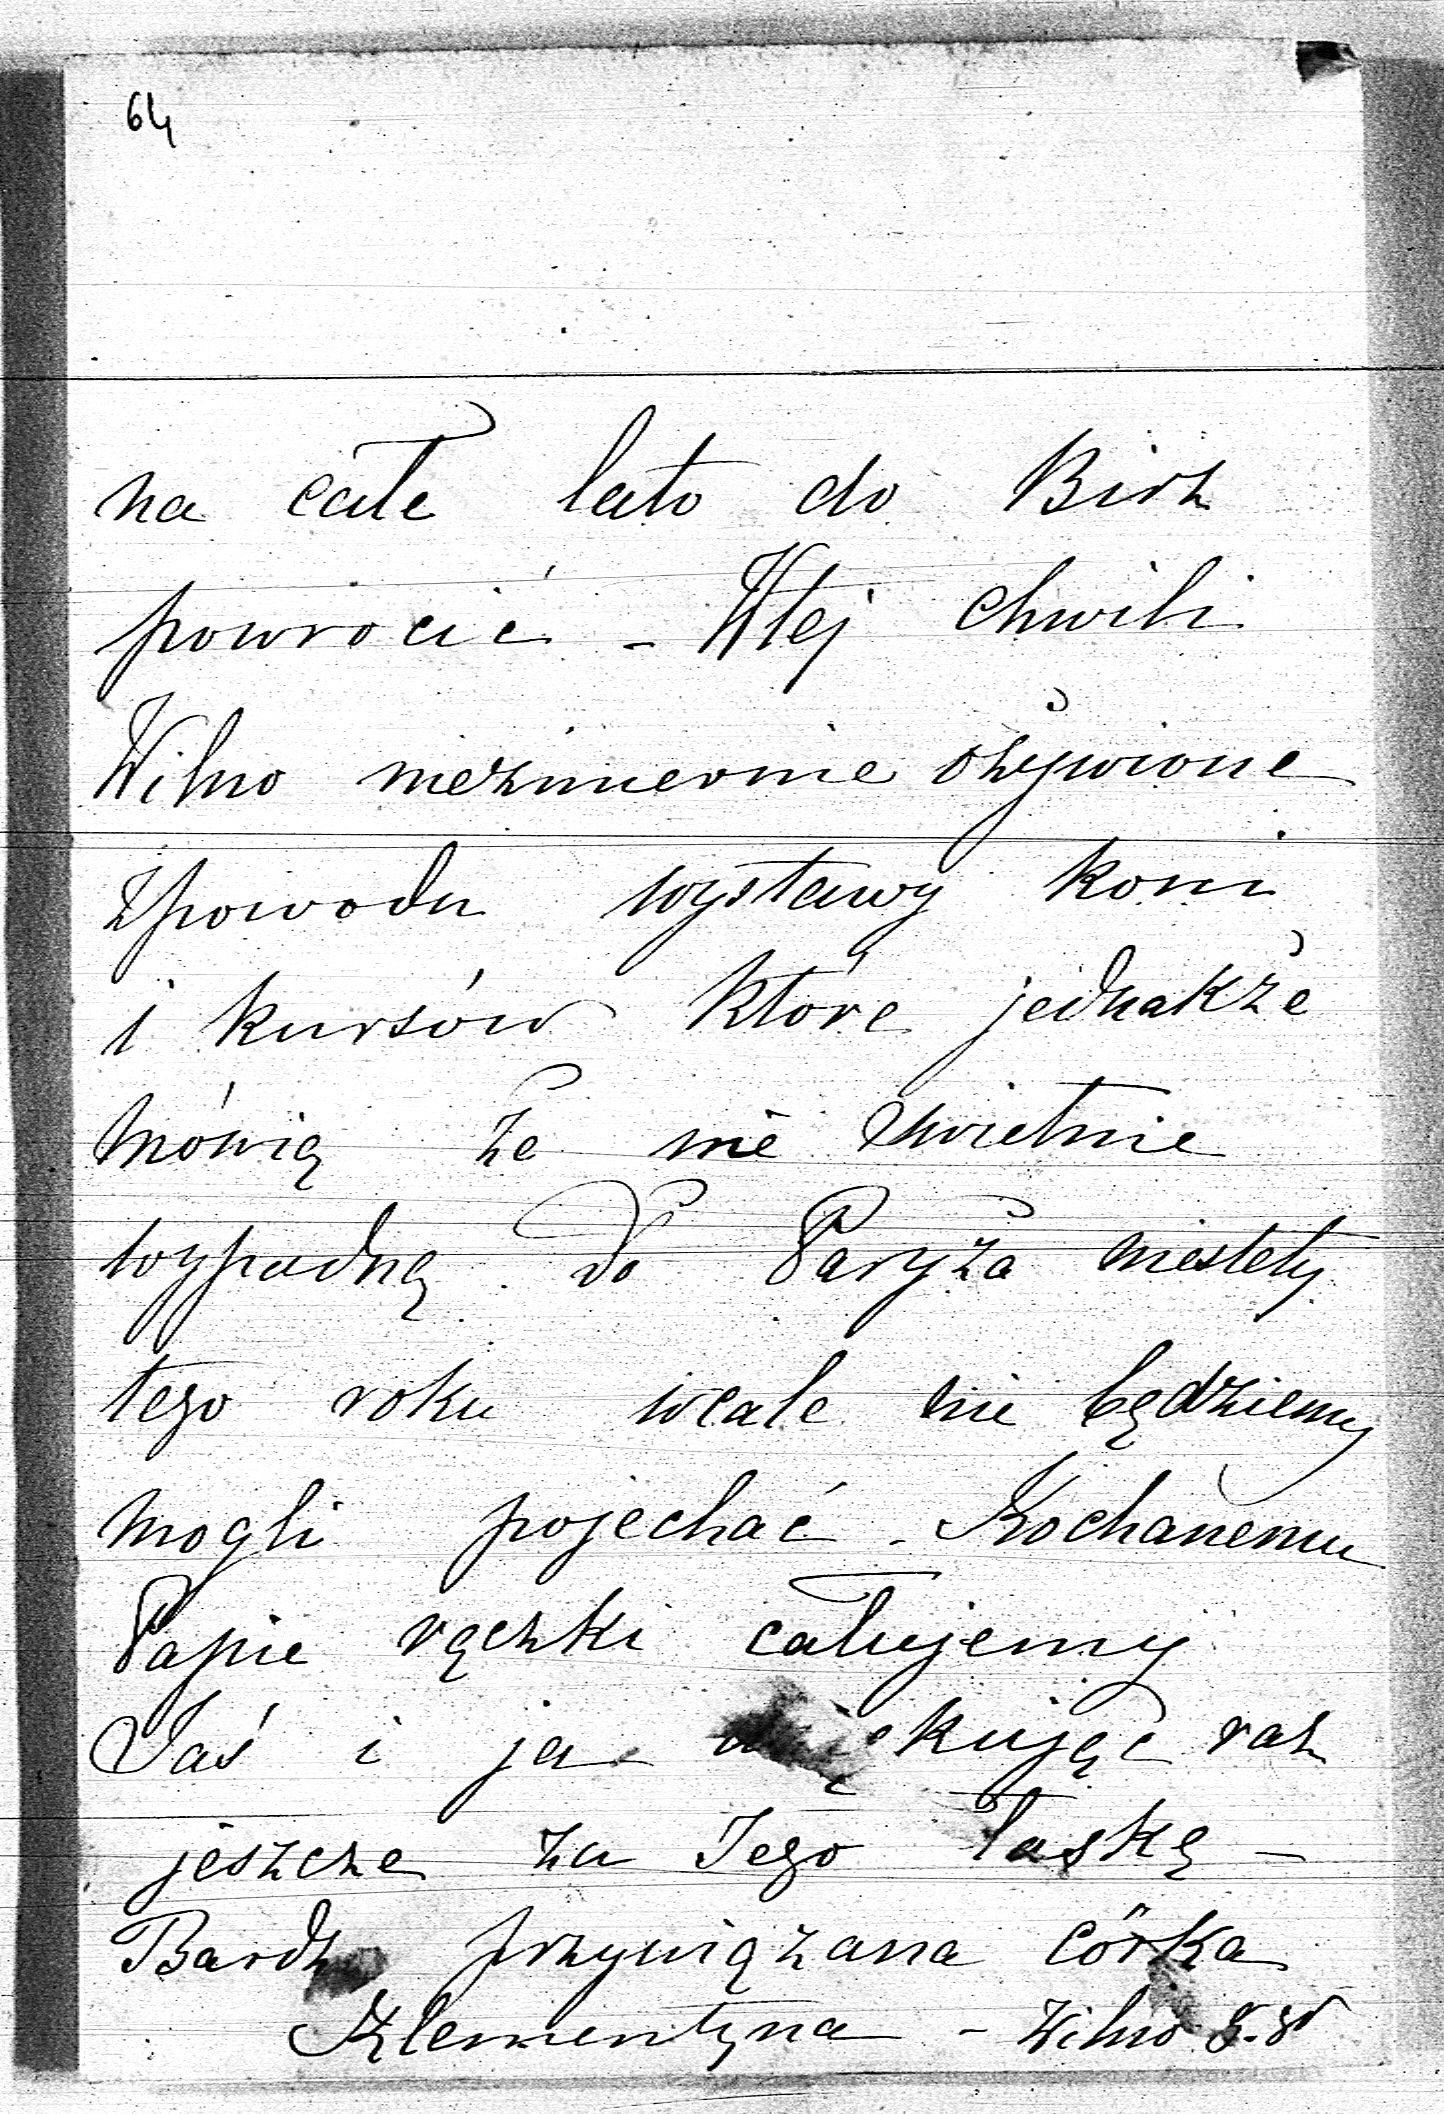 64
na całe lato do Birż
powrócić - Wtej chwili
Wilno niezmiernie ożywione
zpowodu wystawy koni
i kursów które jednakże
mówią że nie świetnie
wypadną. Do Paryża niestety
tego roku wcale nie będziemy
mogli pojechać. Kochanemu
Papie rączki całujemy
Jaś i ja dziękując raz
jeszcze za Jego łaskę -
Bardzo przywiązana córka
Klementyna - Wilno